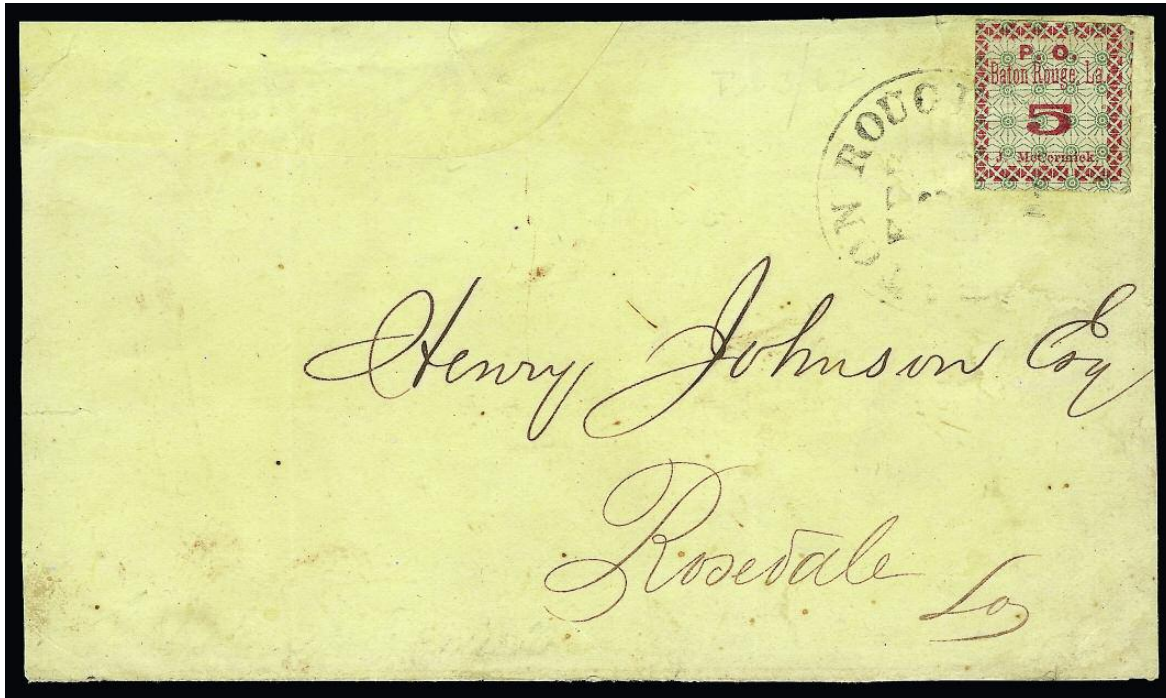 P. O.
Baton Rouge, La.
5
J. McCcrmick.
ON ROUG
Henry Johnson Esq
Rosedale
La